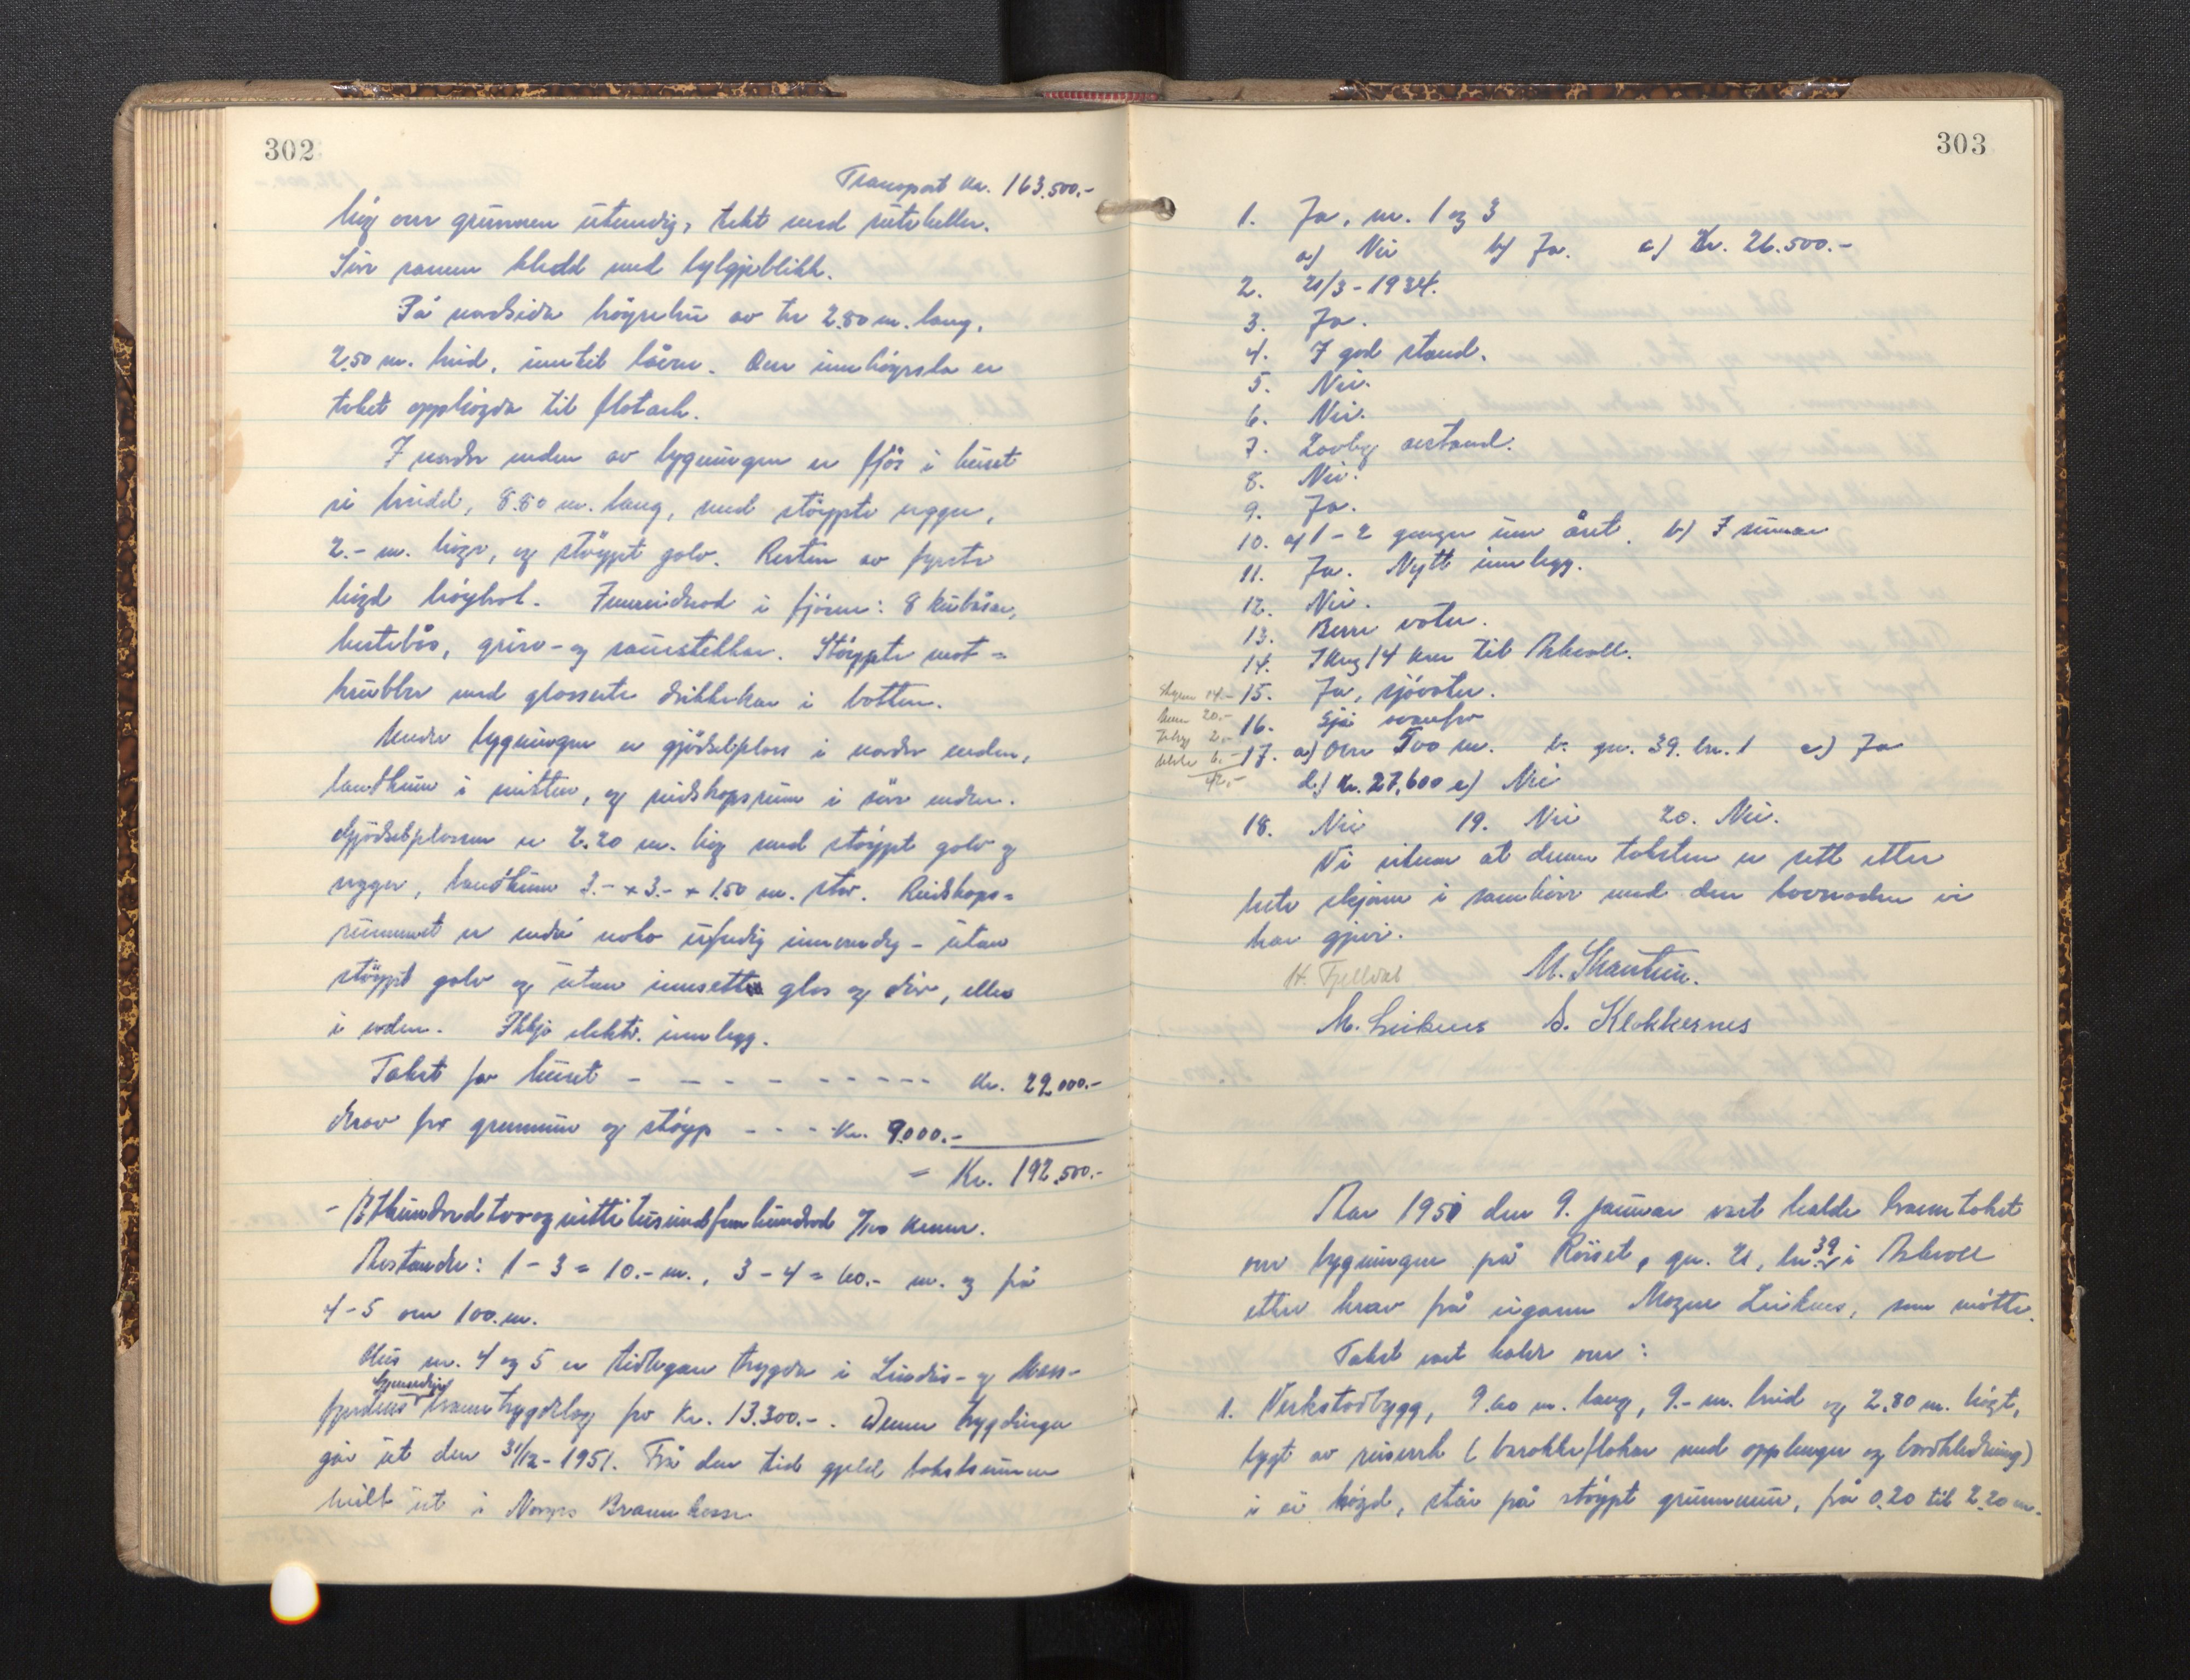 302
Transport kr. 163.500.-
høg om grunnen utvendig, tekt med ruteheller.
Sør rømen kledd med bylgjeblikk.
På nordsida høgsehus av tre 2.80 m. lang,
2.50 m. breid, inntil låven. Over innhøgsla er
teket opphøgda til flatark.
I nordre enden av bygningen er fjøs i huset
si breidd, 8.80 m. lang, med støypte vegger,
2.- m. høge, og støypt golv. Resten av fyrste
høgd høyhol. Innreidnad i fjøsen: 8 kubåsar,
hestebås, grise- og sauestekkar. Støypte mat=
krubber med glasserte drikkekar i botten.
Under bygningen er gjødselplass i nordre enden,
landkum i mitten, og reidskapsrum i søre enden.
Gjødselplassen er 2.20 m. høg med støypt golv og
vegger, landkum 3.- x 3.- x 1.50 m. stor. Reidskaps=
rummet er endå noko uferdig innvendig - utan
støypt golv og utan innsette glas og dør, eller
i orden. Ikkje elektr. innlegg.
Takst for huset - - - - - - - - - Kr. 29.000.-
Herav for grunnmur og støyp - - - Kr. 9.000.-
= Kr. 192.500.-
- Etthundredtoognittitusundfemhundred 0/100 kroner.
Avstander: 1 - 3 = 10.- m., 3 - 4 = 60.- m. og frå
4 - 5 om 100. m.
Hus nr. 4 og 5 er tidlegare trygda i Lindås- og Mas-
fjordens gjensidige branntrygdelag for Kr. 13.300.-. Denne trygdinga
går ut den 31/12 - 1951. Frå den tid gjeld takstsummen
heilt ut i Norges Brannkasse.
303
1. Ja, nr. 1 og 3
a) Nei b) Ja. c) Kr. 26.500.-
2. 21/3 - 1934.
3. Ja.
4. I god stand.
5. Nei.
6. Nei.
7. Lovleg avstand.
8. Nei.
9. Ja.
10. a) 1 - 2 gonger um året. b) I
11. Ja. Nytt innlegg.
12. Nei.
13. Berre vatn.
14. Ikring 14 km til Askvoll.
15. Ja, sjøvatn.
16. Sjå ovanfor
17. a) Om 500 m. b. gn. 39. bn. 1 c) Ja
d.) Kr. 27.600 e) Nei
14.-
20.-
2.-
6.-
42.-
18. Nei 19. Nei 20. Nei.
Vi vitnar at denne taksten er sett etter
beste skjøn i samhøve med den lovnaden vi
har gjeve.
H. Fjelldal M. Skantun.
M. Leiknes S. Klokkernes
Aar 1951 den 9. januar vart halde branntakst
over bygningen på Röiset, gn. 21, bn. 39 i Askvoll
etter krav frå eigaren Mogne Leiknes, som møtte.
Takst vart halde over:
1. Verkstadbygg, 9.60 m. lang, 9.- m. breid og 2.80 m. høgt,
bygt av reisverk (barakkeflakar med opplenger og bordkledning)
i ei høgd, står på støypt grunnmur, frå 0.20 til 2.20 m.